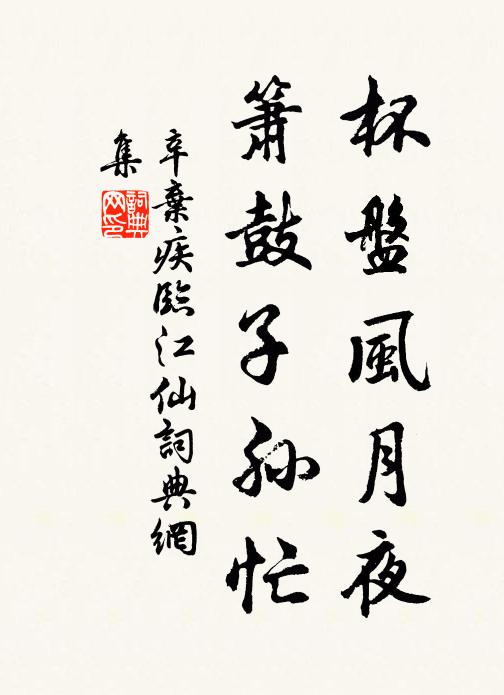 杯盤風月夜
簫鼓子孙忙
辛棄疾臨江仙詞典網
集
詞典
网印